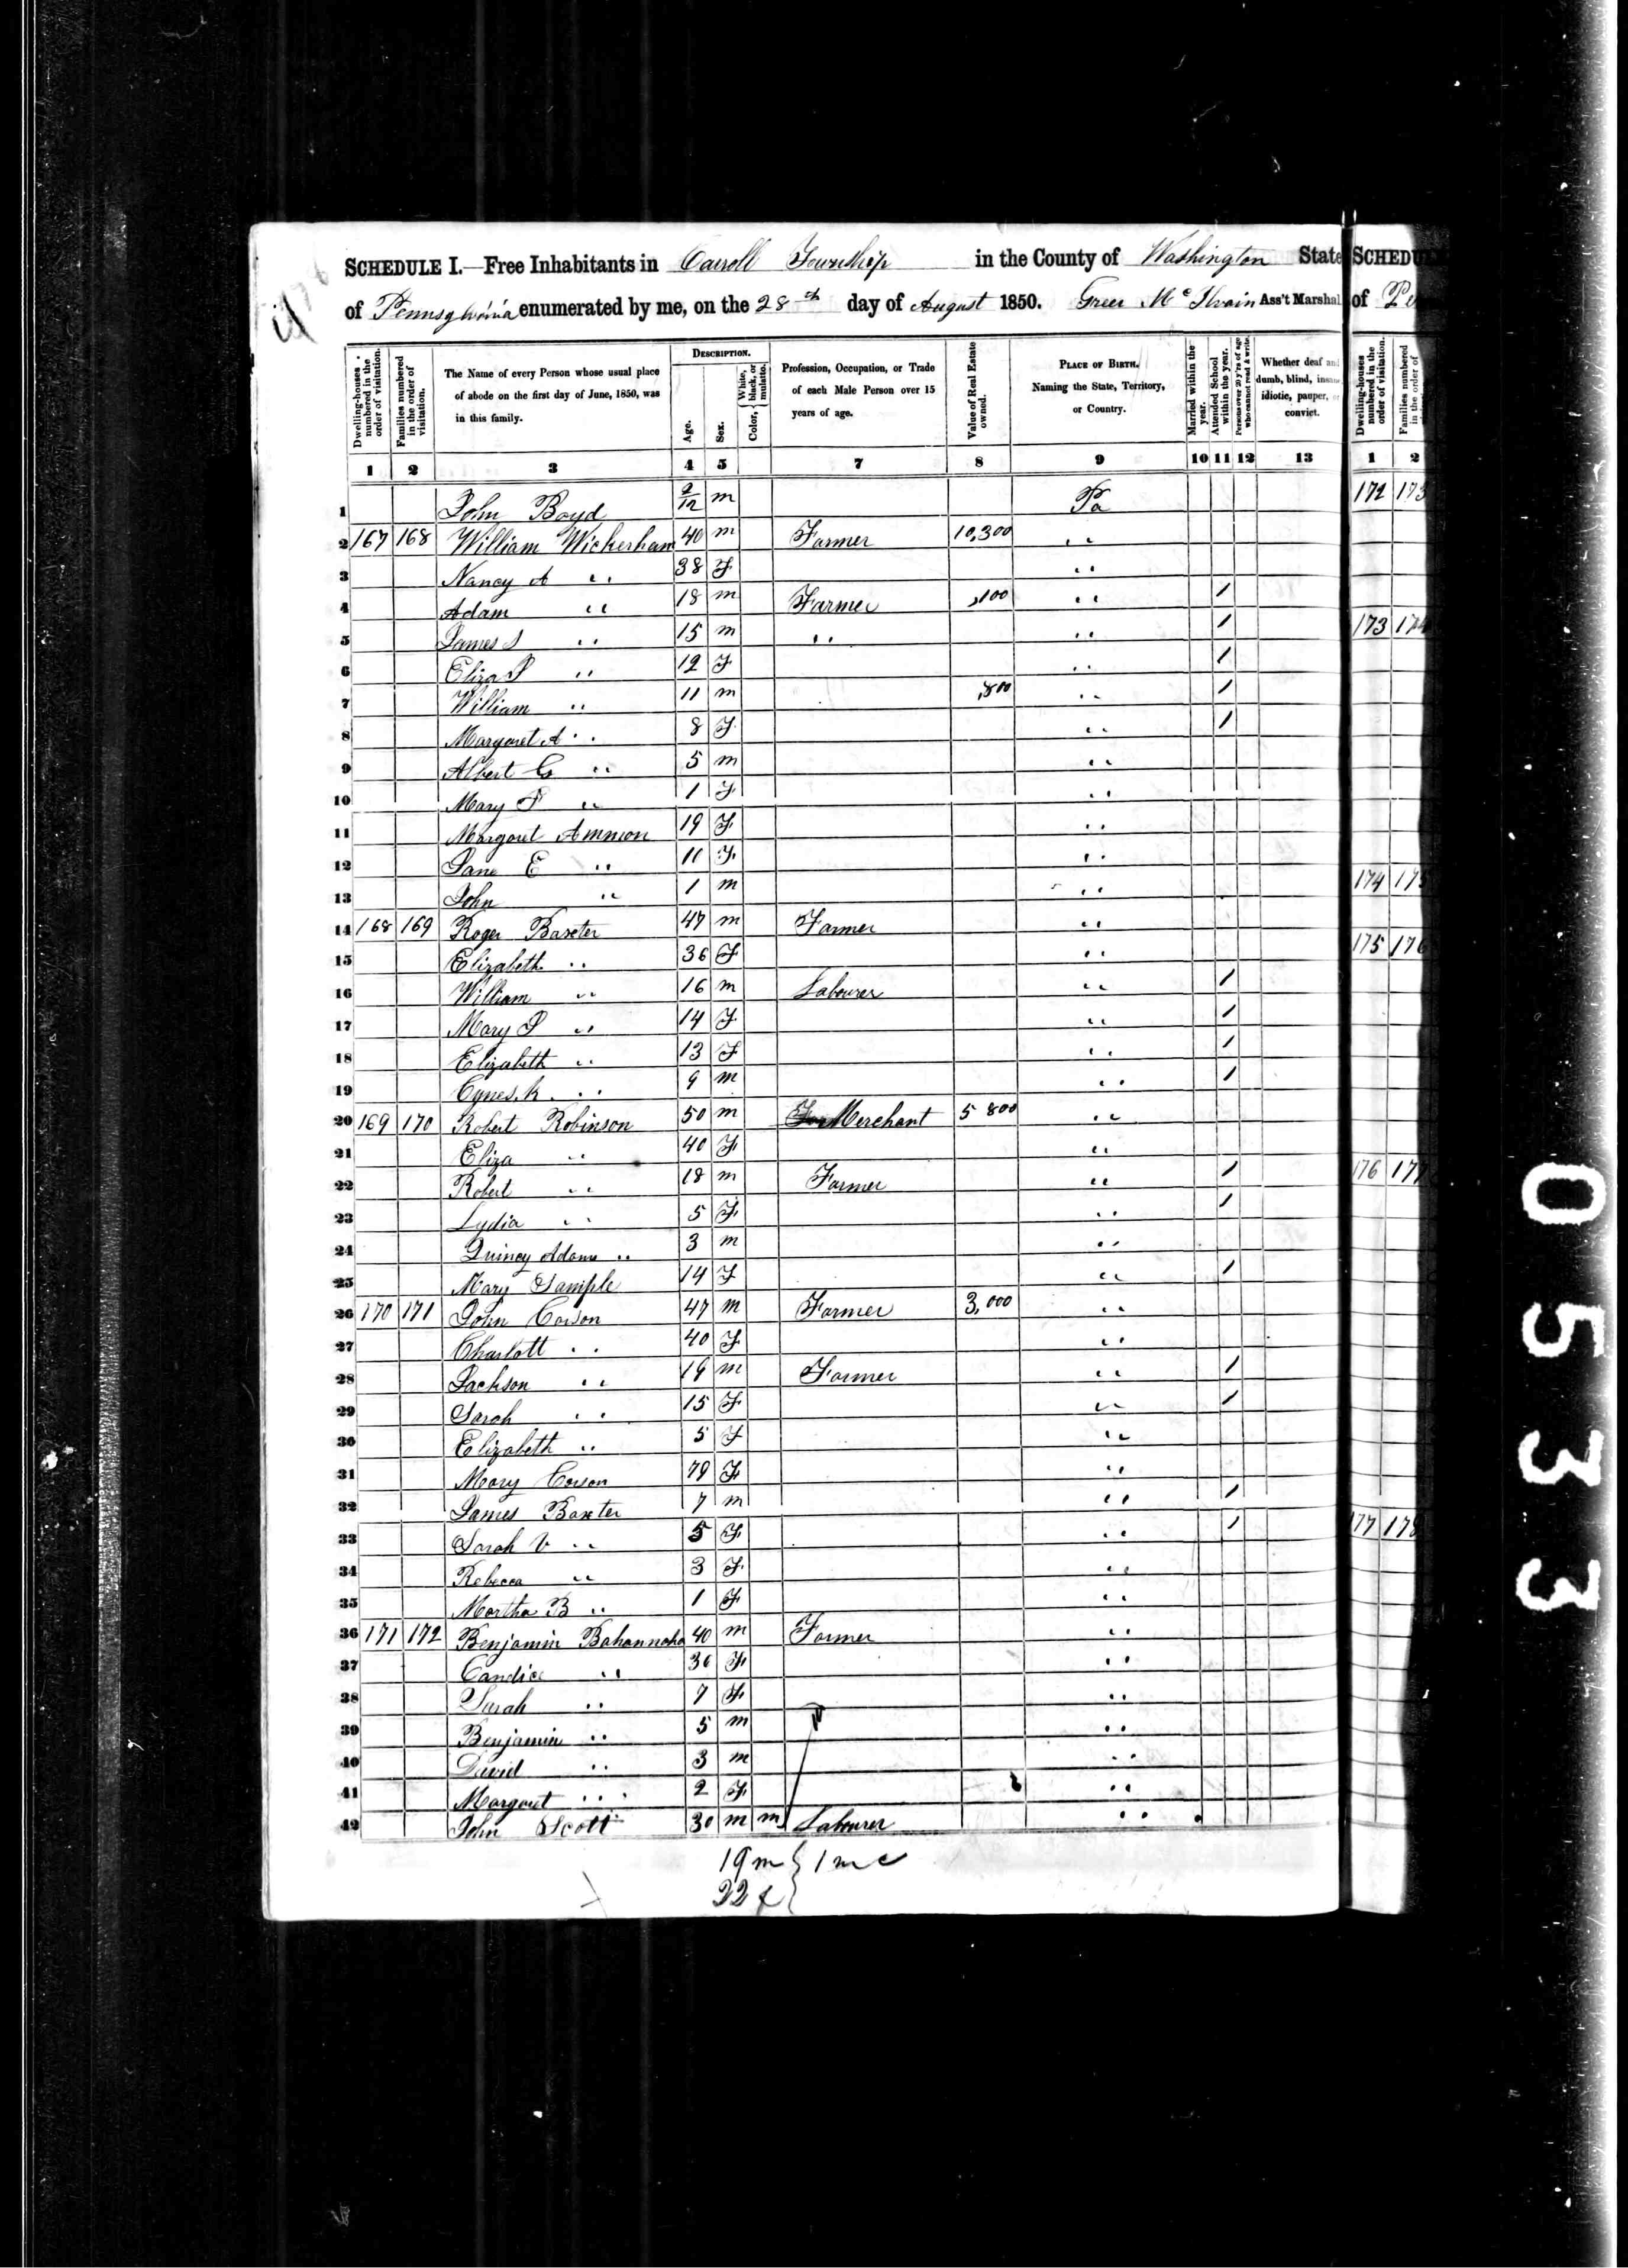 SCHEDULE I.—Free Inhabitants in Carroll Township in the County of Washington State
of Pennsylvania enumerated by me, on the 28th day of August 1850. Greer McIlvain Ass't Marshal
SCHEDU
of Pe
Dwelling-houses numbered in the order of visitation.
Families numbered in the order of visitation.
The Name of every Person whose usual place of abode on the first day of June, 1850, was in this family.
DESCRIPTION.
Age.
Sex.
Color, White, black, or mulatto.
Profession, Occupation, or Trade of each Male Person over 15 years of age.
Value of Real Estate owned.
PLACE OF BIRTH. Naming the State, Territory, or Country.
Married within the year.
Attended School within the year.
Persons over 20 y'rs of age who cannot read & write.
Whether deaf and dumb, blind, insane, idiotic, pauper, or convict.
Dwelling-houses numbered in the order of visitation.
Families numbered in the order of
1 2 3 4 5 7 8 9 10 11 12 13 1 2
1 John Boyd 2/12 m Pa 172 173
2 167 168 William Wickerham 40 m Farmer 10,300 ,,
3 Nancy A ,, 38 F ,,
4 Adam ,, 18 m Farmer ,100 ,, /
5 James S ,, 15 m ,, ,, / 173 174
6 Eliza ,, 12 F ,, /
7 William ,, 11 m ,800 ,, /
8 Margaret A ,, 8 F ,, /
9 Albert G ,, 5 m ,,
10 Mary ,, 1 F ,,
11 Margaret Ammon 19 F ,,
12 Jane E ,, 11 F ,,
13 John ,, 1 m ,, 174 175
14 168 169 Roger Baxter 47 m Farmer ,,
15 Elizabeth ,, 36 F ,, 175 176
16 William ,, 16 m Labourer ,, /
17 Mary ,, 14 F ,, /
18 Elizabeth ,, 13 F ,, /
19 ,, 9 m ,, /
20 169 170 Robert Robinson 50 m Merchant 5 800 ,,
21 Eliza ,, 40 F ,,
22 Robert ,, 18 m Farmer ,, / 176 177
23 Lydia ,, 5 F ,, /
24 Quincy Adams ,, 3 m ,,
25 Mary Sample 14 F ,, /
26 170 171 John Corson 47 m Farmer 3,000 ,,
27 Charlott ,, 40 F ,,
28 Jackson ,, 19 m Farmer ,, /
29 Sarah ,, 15 F ,, /
30 Elizabeth ,, 5 F ,,
31 Mary Corson 79 F ,,
32 James Baxter 7 m ,, /
33 Sarah V ,, 5 F ,, / 177 178
34 Rebecca ,, 3 F ,,
35 Martha B ,, 1 F ,,
36 171 172 Benjamin 40 m Farmer ,,
37 Candice ,, 36 F ,,
38 Sarah ,, 7 F ,,
39 Benjamin ,, 5 m ,,
40 David ,, 3 m ,,
41 Margaret ,, 2 F ,,
42 John Scott 30 m m Labourer ,,
19 m } 1 m c
22 f }
0533